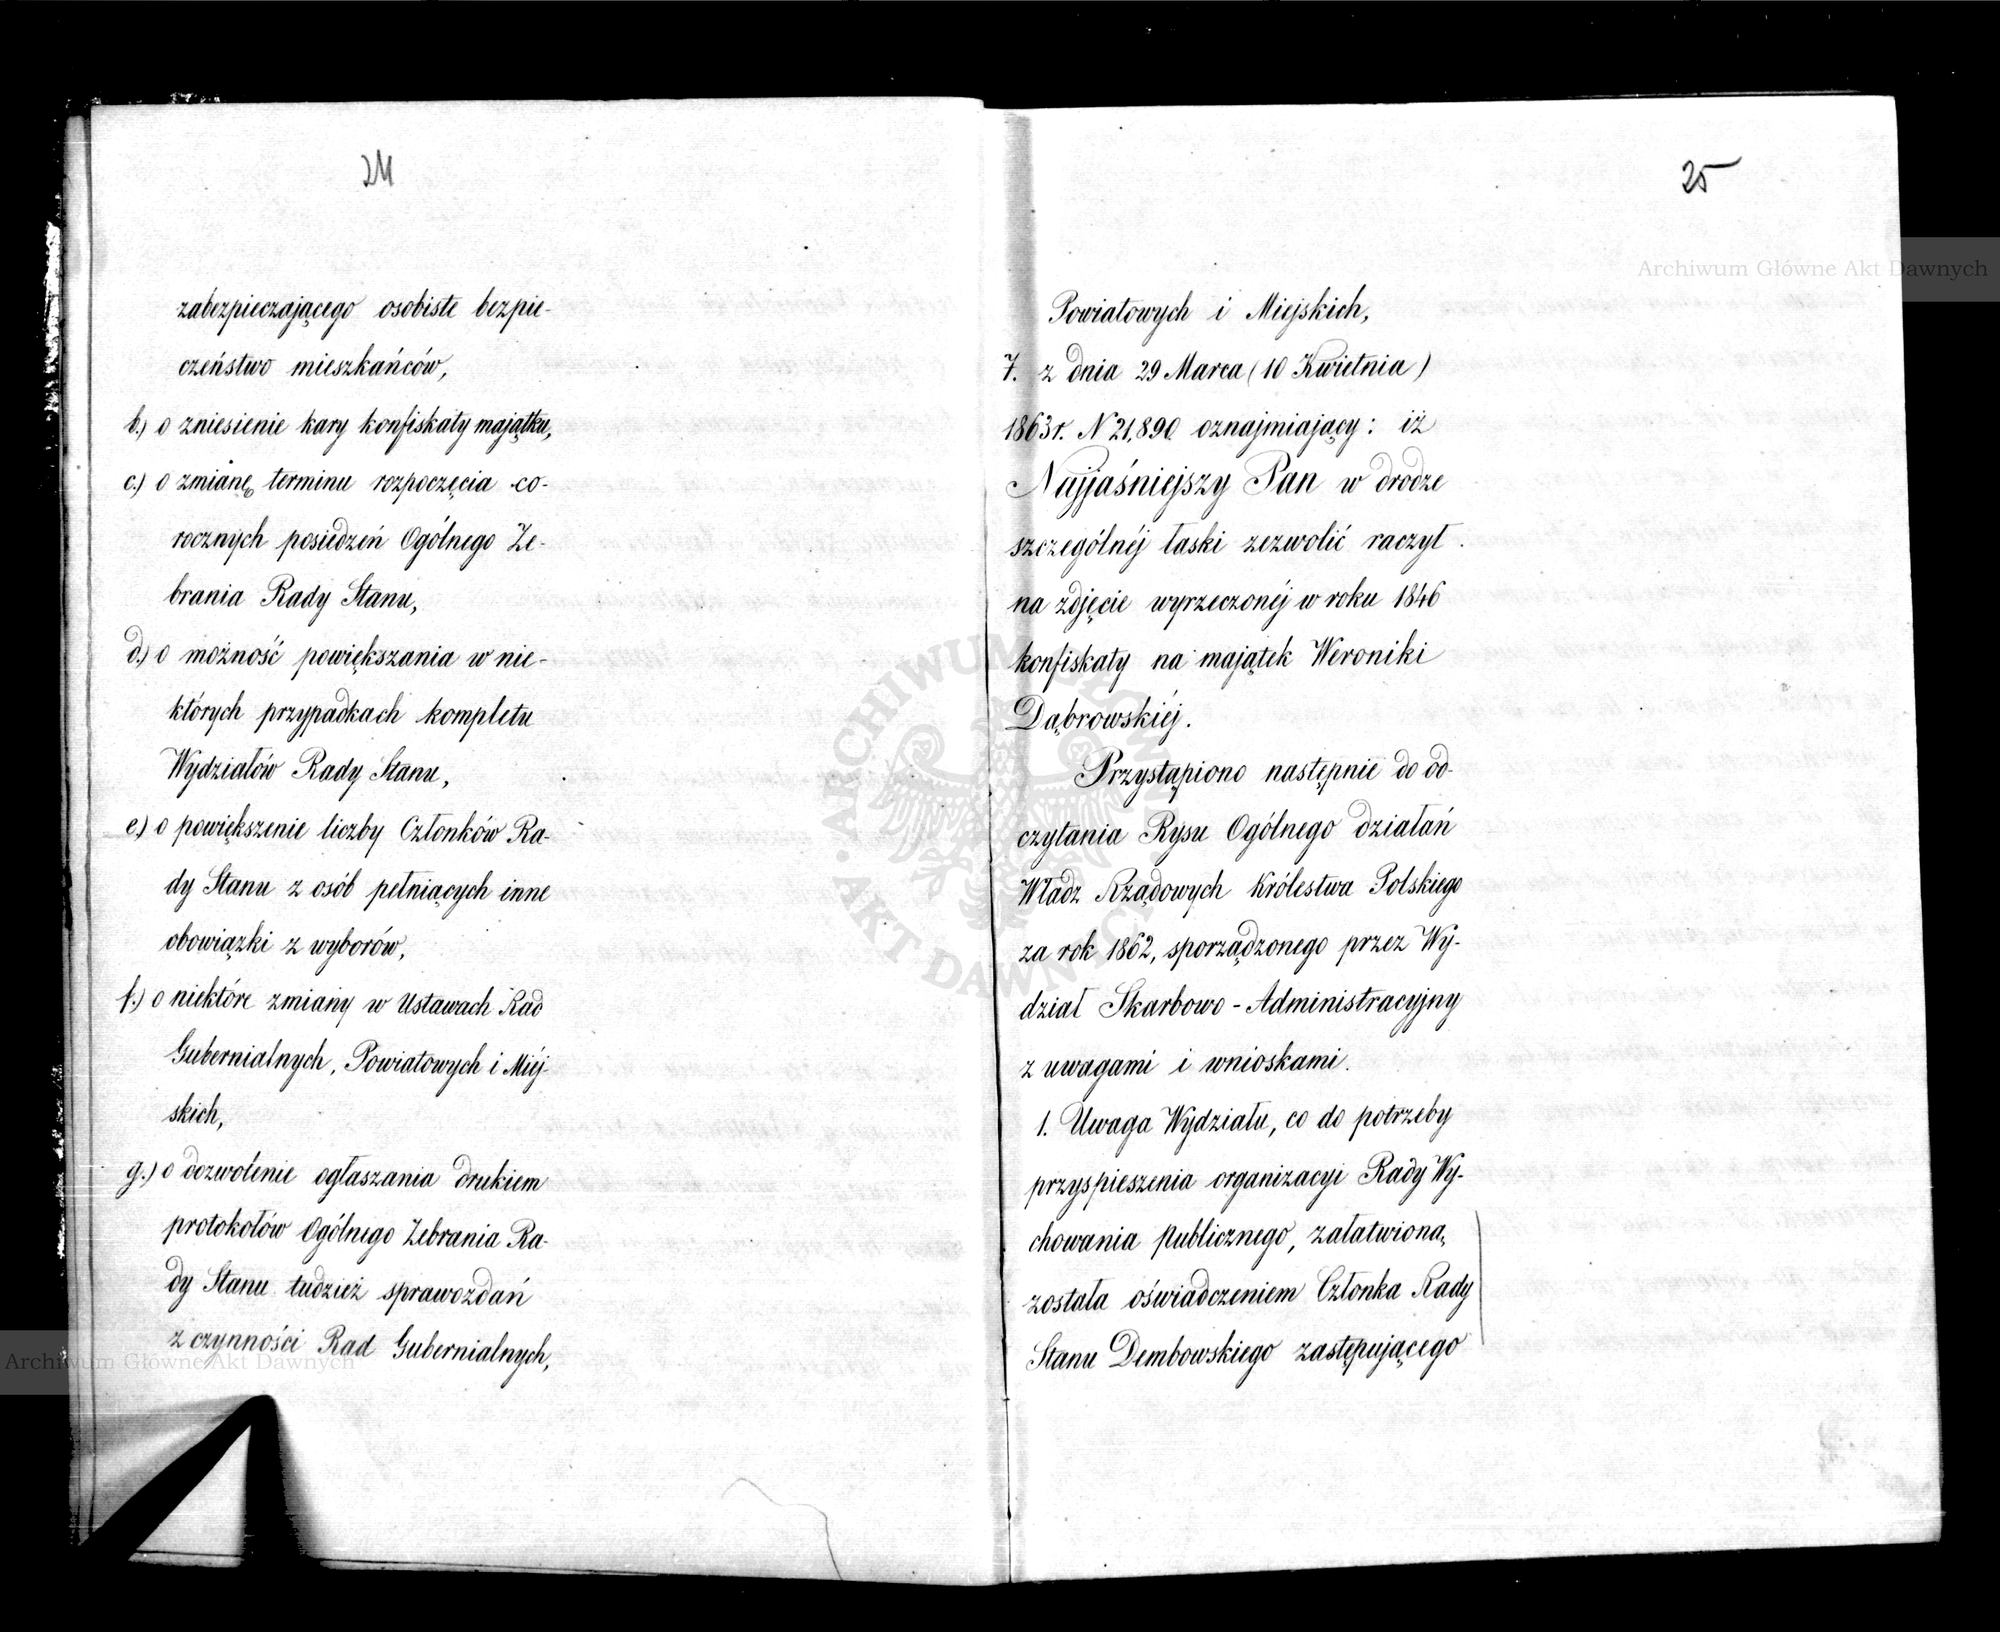 24
zabezpieczającego osobiste bezpie-
czeństwo mieszkańców,
b.) o zniesienie kary konfiskaty majątku,
c.) o zmianę terminu rozpoczęcia co-
rocznych posiedzeń Ogólnego Ze-
brania Rady Stanu,
d.) o możność powiększania w nie-
których przypadkach kompletu
Wydziałów Rady Stanu,
e.) o powiększenie liczby Członków Ra-
dy Stanu z osób pełniących inne
obowiązki z wyborów,
f.) o niektóre zmiany w Ustawach Rad
Gubernialnych, Powiatowych i Miéj-
skich,
g.) o dozwolenie ogłaszania drukiem
protokołów Ogólnego Zebrania Ra-
dy Stanu tudzież sprawozdań
z czynności Rad Gubernialnych,
25
Powiatowych i Miejskich,
7. z dnia 29 Marca (10 Kwietnia)
1863r. N 21,890 oznajmiający: iż
Najjaśniejszy Pan w drodze
szczególnéj łaski zezwolić raczył
na zdjęcie wyrzeczonéj w roku 1846
konfiskaty na majątek Weroniki
Dąbrowskiéj.
Przystąpiono następnie do od-
czytania Rysu Ogólnego działań
Władz Rządowych Królestwa Polskiego
za rok 1862, sporządzonego przez Wy-
dział Skarbowo-Administracyjny
z uwagami i wnioskami.
1. Uwaga Wydziału, co do potrzeby
przyspieszenia organizacyi Rady Wy-
chowania publicznego, załatwioną
została oświadczeniem Członka Rady
Stanu Dembowskiego zastępującego
Archiwum Główne Akt Dawnych
Archiwum Główne Akt Dawnych
ARCHIWUM GŁÓWNE AKT DAWNYCH